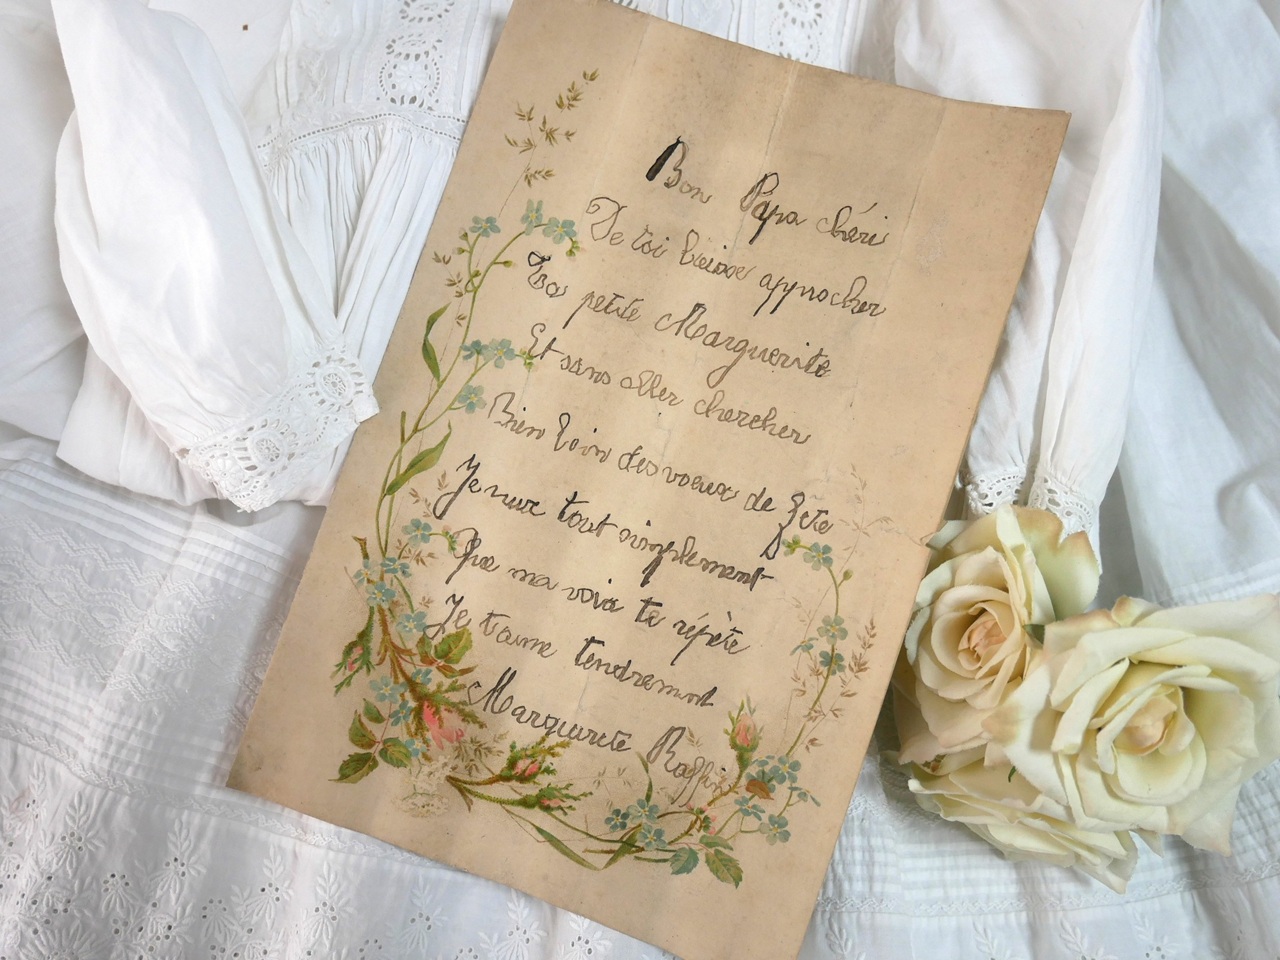 Bon Papa chéri
De toi laisse approcher
Ta petite Marguerite
Et sans aller chercher
Bien loin des voeux de fête
Je veux tout simplement
Que ma voix te répète
Je t'aime tendrement
Marguerite Raffin